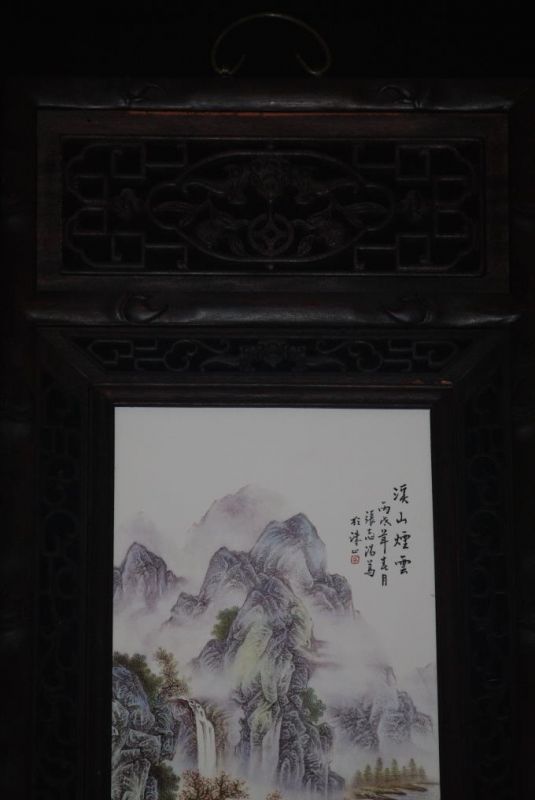 溪山煙雲
丙戌年春月
張志湯寫
於珠山